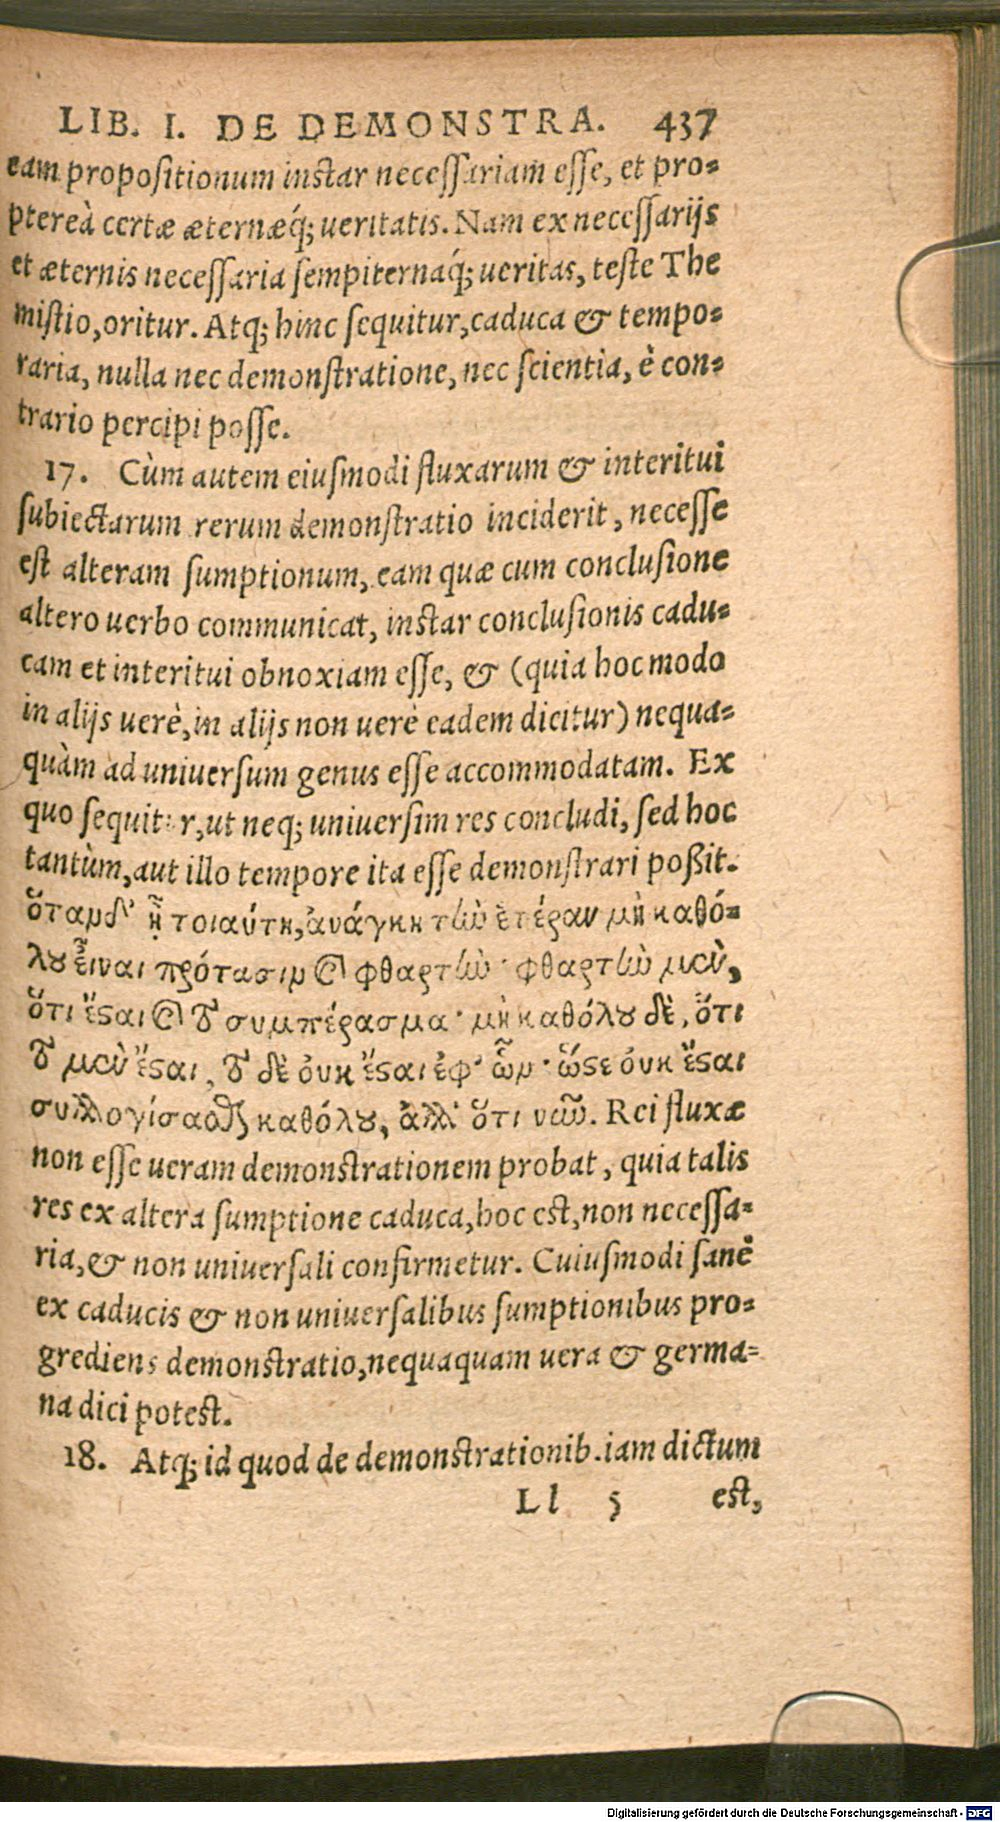 LIB. I. DE DEMONSTRA. 437
eam propositionum instar necessariam esse, et pro-
ptereà certæ æternæq́; ueritatis. Nam ex necessarijs
et æternis necessaria sempiternaq́; ueritas, teste The
mistio, oritur. Atq; hinc sequitur, caduca & tempo-
raria, nulla nec demonstratione, nec scientia, è con-
trario percipi posse.
17. Cùm autem eiusmodi fluxarum & interitui
subiectarum rerum demonstratio inciderit, necesse
est alteram sumptionum, eam quæ cum conclusione
altero uerbo communicat, instar conclusionis cadu-
cam et interitui obnoxiam esse, & (quia hoc modo
in alijs uerè, in alijs non uerè eadem dicitur) nequa-
quàm ad uniuersum genus esse accommodatam. Ex
quo sequitur, ut neq; uniuersim res concludi, sed hoc
tantùm, aut illo tempore ita esse demonstrari poßit.
ὅταν δ' ᾖ τοιαύτη, ἀνάγκη τὴν ἑτέραν μὴ καθό-
λου εἶναι πρότασιν καὶ φθαρτὴν· φθαρτὴν μὲν,
ὅτι ἔσαι καὶ τὸ συμπέρασμα· μὴ καθόλου δὲ, ὅτι
τὸ μὲν ἔσαι, τὸ δὲ οὐκ ἔσαι ἐφ' ὧν· ὥστε οὐκ ἔσαι
συλλογίσασθαι καθόλου, ἀλλ' ὅτι νῦν. Rei fluxæ
non esse ueram demonstrationem probat, quia talis
res ex altera sumptione caduca, hoc est, non necessa-
ria, & non uniuersali confirmetur. Cuiusmodi sanè
ex caducis & non uniuersalibus sumptionibus pro-
grediens demonstratio, nequaquam uera & germa-
na dici potest.
18. Atq; id quod de demonstrationib. iam dictum
Ll 5 est,
Digitalisierung gefördert durch die Deutsche Forschungsgemeinschaft - DFG